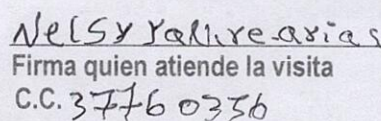 Nelsy Yallire arias
Firma quien atiende la visita
C.C. 37760356